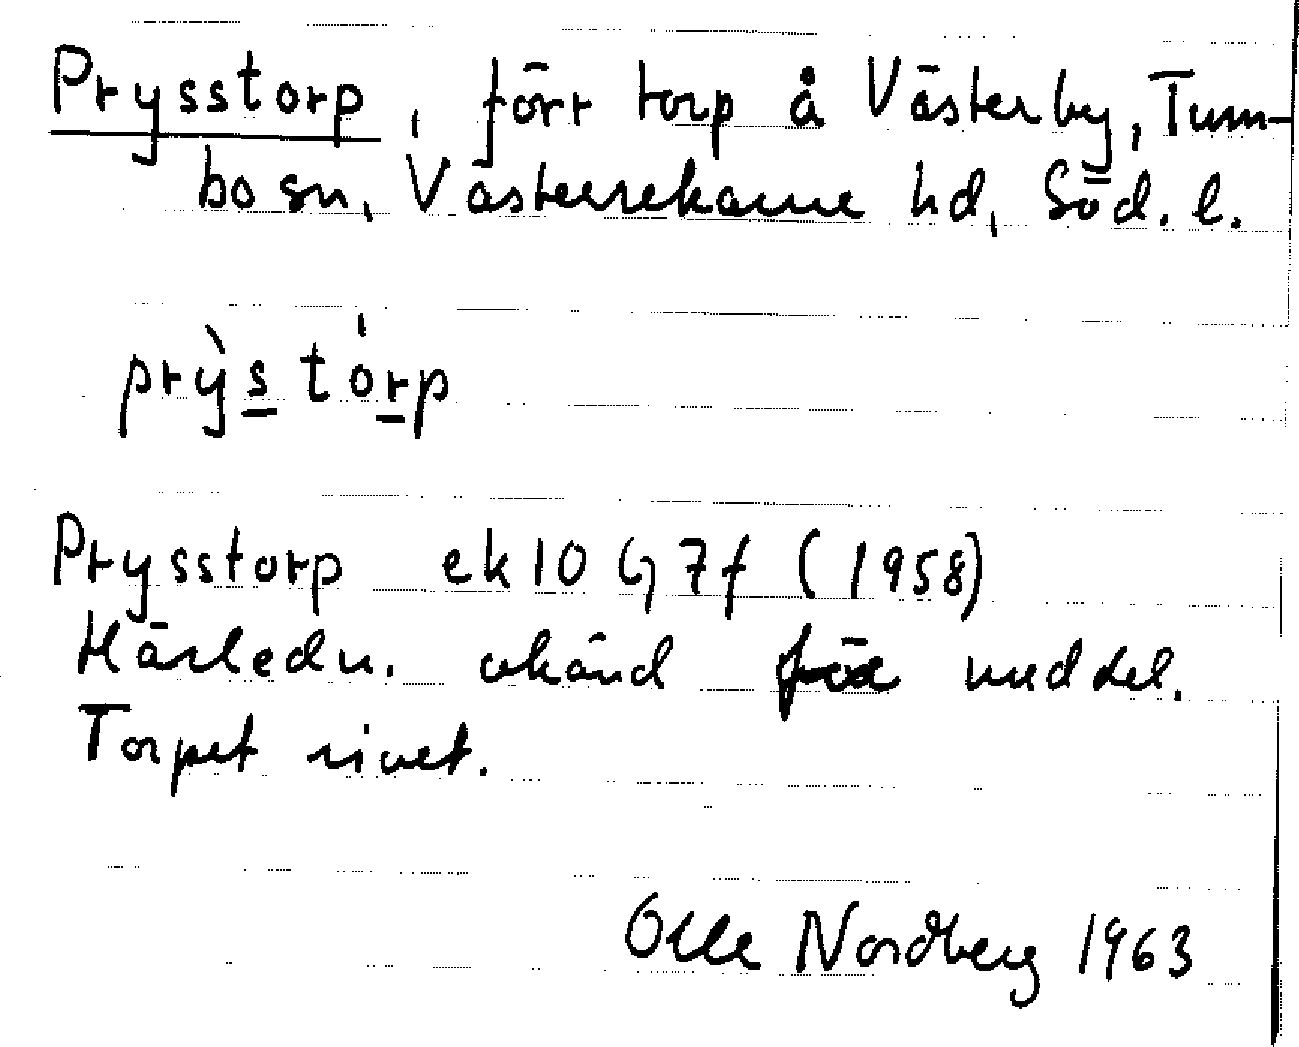 Prysstorp, förr torp å Västerby, Tum-
bo sn, Västerrekarne hd, Söd. l.
prỳs tórp
Prysstorp ek 10 G 7f (1958)
Härledn. okänd för meddel.
Torpet rivet.
Olle Nordberg 1963